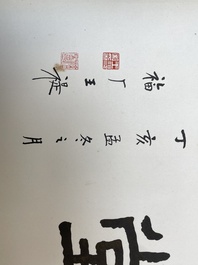 丁亥孟冬之月
福厂王禔